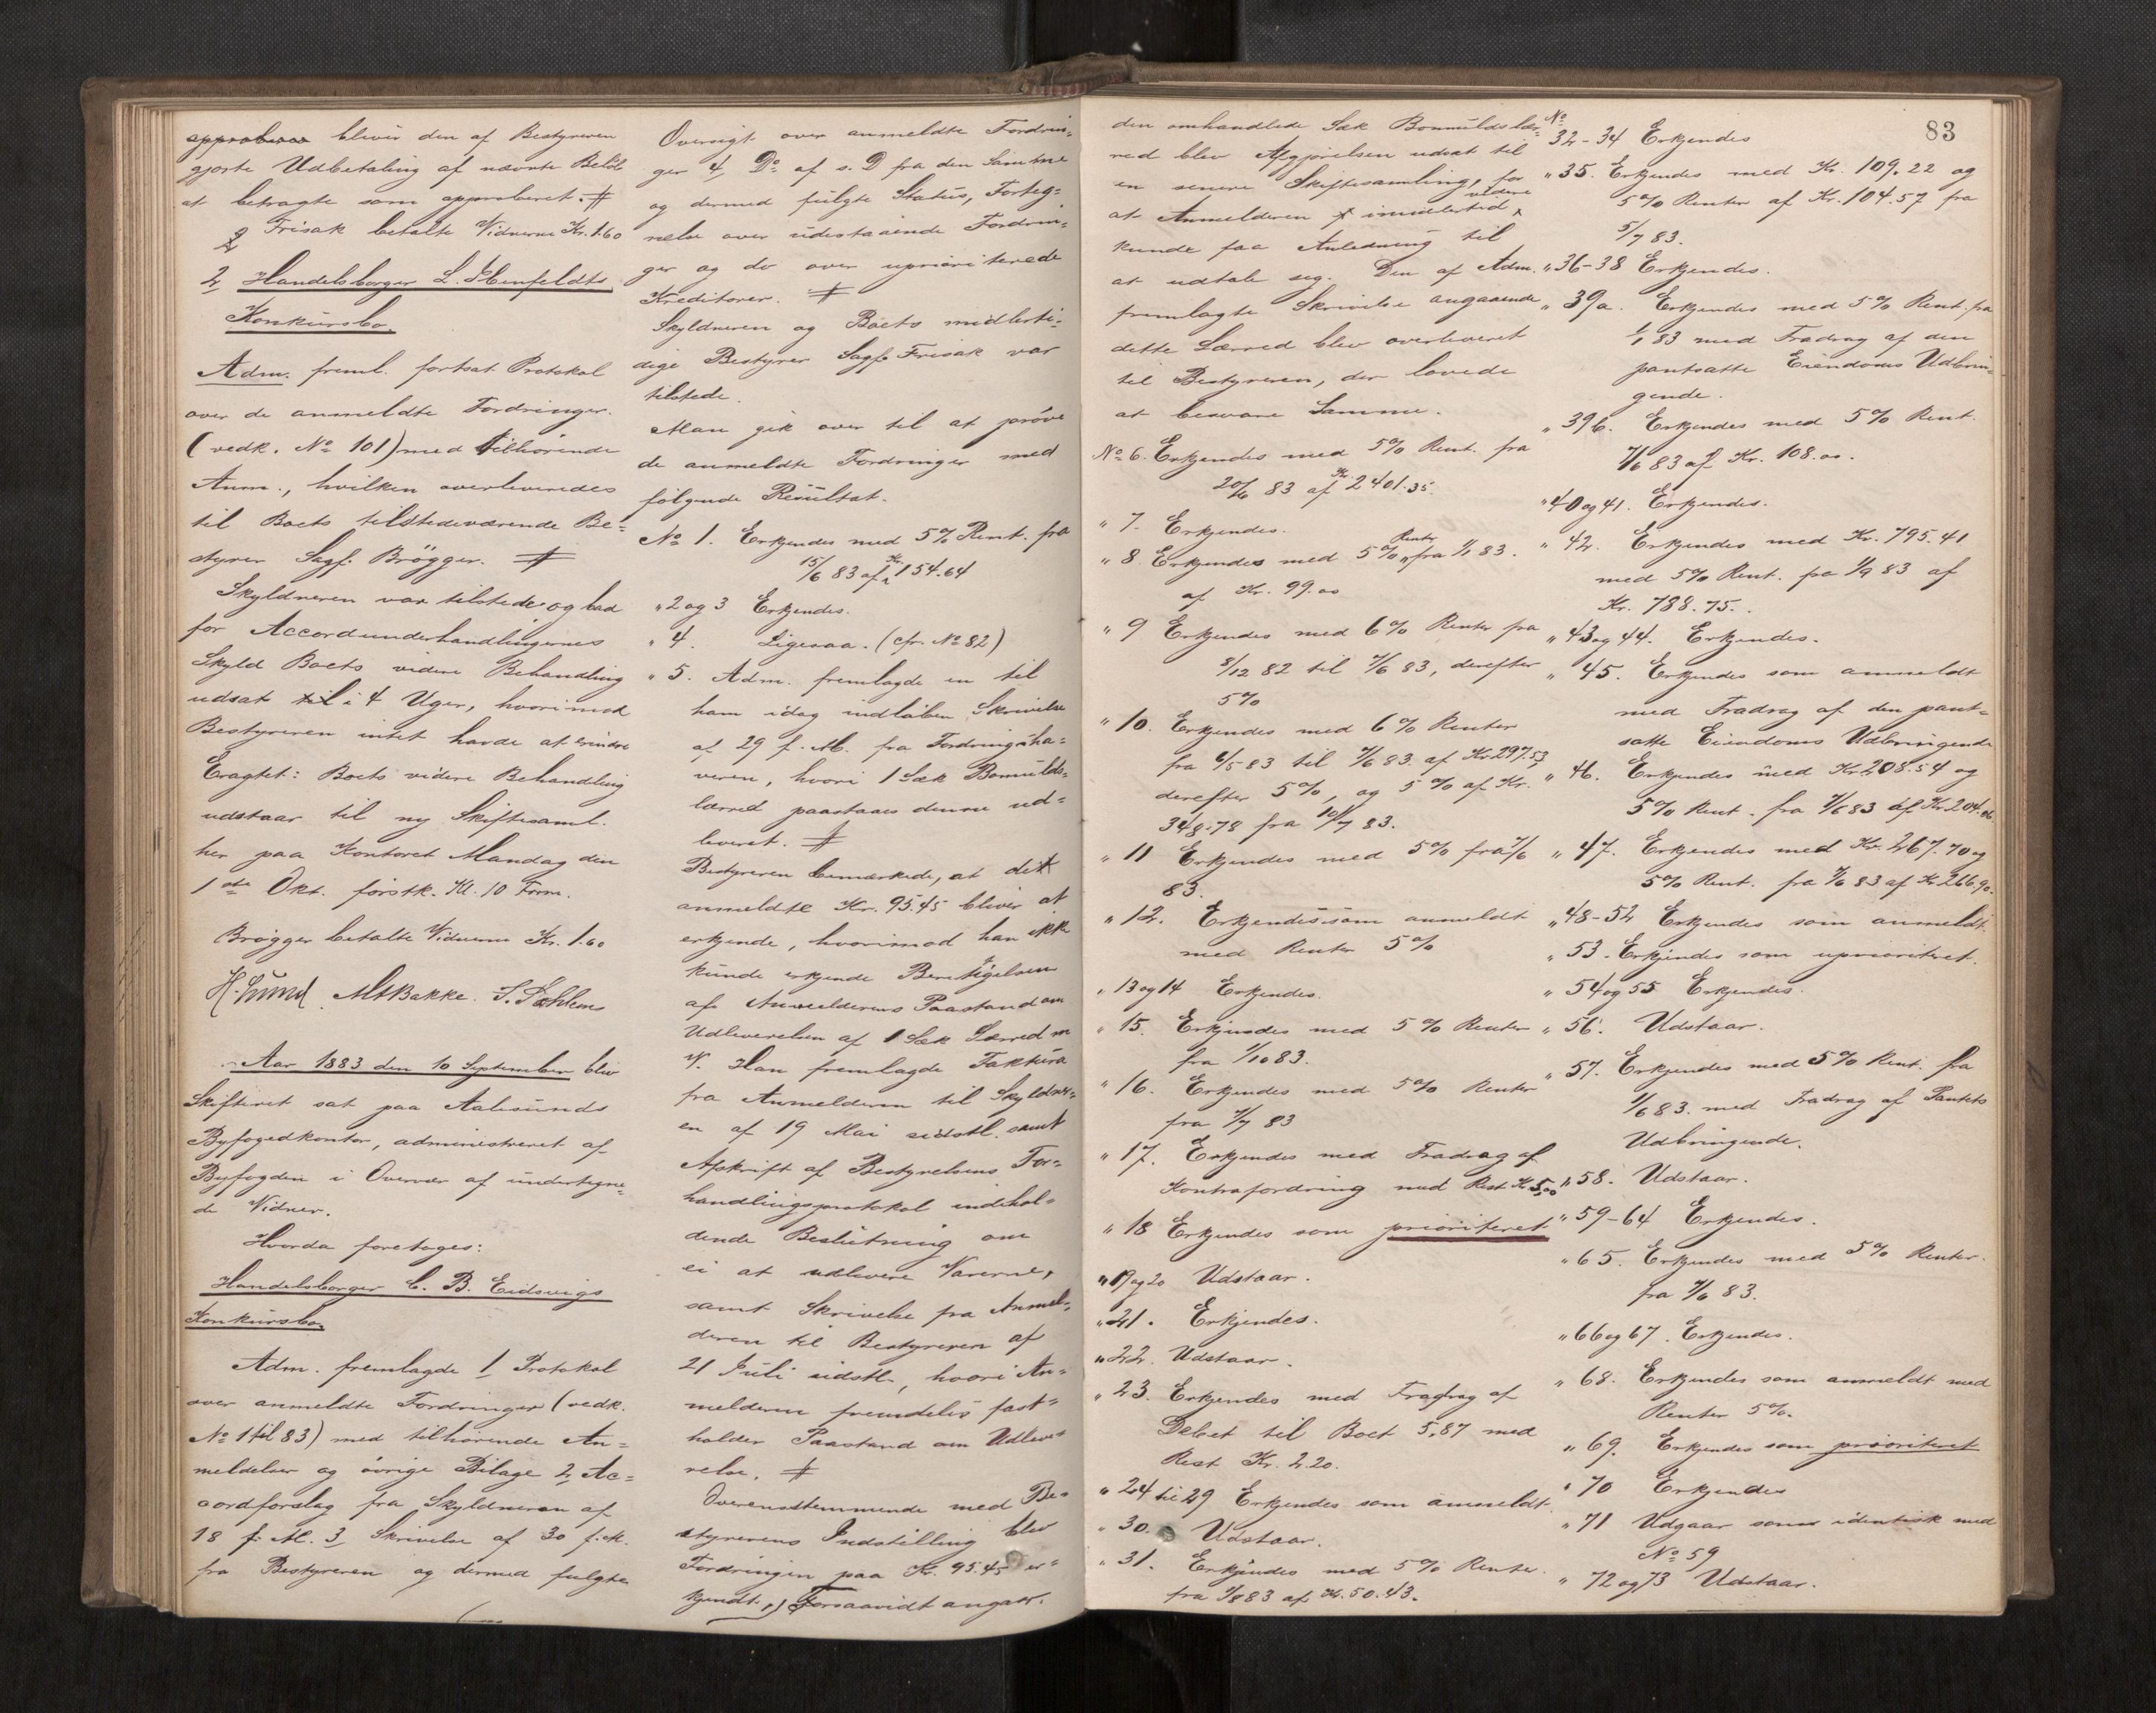 approberes bliver den af Bestyreren
gjorte Udbetaling af nævnte Beløb
at betragte som approberet. #
Frisak betalte Vidnerne Kr. 1.60
2, Handelsborger L. Stenfeldts
Konkursbo.
Adm. freml. fortsat Protokol
over de anmeldte Fordringer.
(vedk. No 101) med tilhørende
Anm., hvilken overleveredes
til Boets tilstedeværende Be=
styrer Sagf. Brøgger. #
Skyldneren var tilstede og bad
for Accordunderhandlingernes
Skyld Boets videre Behandling
udsat til i 4 Uger, hvorimod
Bestyreren intet havde at erindre
Eragtet: Boets videre Behandling
udstaar til ny Skiftesaml.
her paa Kontoret Mandag den
1ste Okt. førstk. Kl. 10 Form.
Brøgger betalte Vidnerne Kr. 1.60
H. Lund MBakke
Aar 1883 den 10 September blev
Skifteret sat paa Aalesunds
Byfogedkontor, administreret af
Byfogden i Overvær af undertegne=
de Vidner.
Hvorda foretoges:
Handelsborger C. B. Eidsvigs
Konkursbo.
Adm. fremlagde 1, Protokol
over anmeldte Fordringer (vedk.
No 1 til 83) med tilhørende An=
meldelser og øvrige Bilage 2, Ac=
cordforslag fra Skyldneren af
18 f. M. 3, Skrivelse af 30 f. M.
fra Bestyreren og dermed fulgte
Oversigt over anmeldte Fordrin=
ger 4, Do af s. D fra den Samme
og dermed fulgte Status, Forteg=
nelse over udestaaende Fordrin=
ger og do over uprioriterede
Kreditorer. #
Skyldneren og Boets midlerti=
dige Bestyrer Sagf. Frisak var
tilstede.
Man gik over til at prøve
de anmeldte Fordringer med
følgende Resultat.
No 1. Erkjendes med 5% Rent. fra
15/6 83 af Kr. 154.64
" 2 og 3 Erkjendes.
" 4. Ligesaa. (cfr. No 82)
" 5. Adm. fremlagde en til
ham idag indløben Skrivelse
af 29 f. M. fra Fordringsha=
veren, hvori 1 Sæk Bomulds=
lærred paastaaes denne ud=
leveret. #
Bestyreren bemærkede, at det
anmeldte Kr. 95.45 bliver at
erkjende, hvorimod han ikke
kunde erkjende Berettigelsen
af Anmelderens Paastand om
Udleverelsen af 1 Sæk Lærred m
V. Han fremlagde Faktura
fra Anmelderen til Skyldner=
en af 19 Mai sidstl. samt
Afskrift af Bestyrelsens For=
handlingsprotokol indehol=
dende Beslutning om
ei at udlevere Varerne,
samt Skrivelse fra Anmel=
deren til Bestyreren af
21 Juli sidstl., hvori An=
melderen fremdeles fast=
holder Paastand om Udleve=
relse. #
Overensstemmende med Be=
styrerens Indstilling blev
Fordringen paa Kr. 95.45 er=
kjendt, Forsaavidt angaar.
83
den omhandlede Sæk Bomuldslær=
red blev Afgjørelsen udsat til
en senere Skiftesamling, for
at Anmelderen imidlertid videre
kunde faa Anledning til
at udtale sig. Den af Adm.
fremlagte Skrivelse angaaende
dette Lærred blev overleveret
til Bestyreren, der lovede
at besvare Samme.
No 6. Erkjendes med 5% Rent. fra
20/6 83 af Kr. 2401.35.
" 7. Erkjendes.
" 8. Erkjendes med 5% Renter fra 1/1 83.
af Kr. 99.00
" 9 Erkjendes med 6% Renter fra
8/12 82 til 7/6 83, derefter
5%
" 10. Erkjendes med 6% Renter
fra 6/5 83 til 7/6 83. af Kr 297.53
derefter 5%, og 5% af Kr.
348.78 fra 10/7 83.
" 11 Erkjendes med 5% fra 7/6
83.
" 12. Erkjendes som anmeldt
med Renter 5%
" 13 og 14 Erkjendes.
" 15. Erkjendes med 5% Renter
fra 1/10 83.
" 16. Erkjendes med 5% Renter
fra 7/7 83
" 17. Erkjendes med Fradrag af
Kontrafordring med Rest Kr 5,00
" 18 Erkjendes som prioriteret
" 19 og 20 Udstaar.
" 21. Erkjendes.
" 22. Udstaar.
" 23. Erkjendes med Fradrag af
Debet til Boet 5,87 med
Rest Kr. 2.20.
" 24 til 29 Erkjendes som anmeldt.
" 30. Udstaar.
" 31. Erkjendes med 5% Renter.
fra 1/8 83 af Kr. 50.43.
No
32-34 Erkjendes
" 35. Erkjendes med Kr. 109.22 og
5% Renter af Kr. 104.57 fra
5/7 83.
" 36-38 Erkjendes.
" 39a. Erkjendes med 5% Rent. fra
1/1 83 med Fradrag af den
pantsatte Eiendoms Udbrin=
gende.
" 39b. Erkjendes med 5% Rent.
7/6 83 af Kr. 108.00.
" 40 og 41. Erkjendes.
" 42. Erkjendes med Kr. 795.41
med 5% Rent. fra 1/9 83 af
Kr. 788.75.
" 43 og 44. Erkjendes.
" 45. Erkjendes som anmeldt
med Fradrag af den pant=
satte Eiendoms Udbringende
" 46. Erkjendes med Kr. 208.54 og
5% Rent. fra 7/6 83 af Kr. 204.06
" 47. Erkjendes med Kr. 267.70 og
5% Rent. fra 7/6 83 af Kr. 266,90.
" 48-52 Erkjendes som anmeldt.
" 53. Erkjendes som uprioriteret.
" 54 og 55 Erkjendes.
" 56. Udstaar.
" 57. Erkjendes med 5% Rent. fra
1/6 83. med Fradrag af Pantets
Udbringende.
" 58. Udstaar.
" 59-64 Erkjendes.
" 65. Erkjendes med 5% Renter.
fra 7/6 83.
" 66 og 67. Erkjendes.
" 68. Erkjendes som anmeldt med
Renter 5%.
" 69. Erkjendes som prioriteret
" 70 Erkjendes
" 71 Udgaar som identisk med
No 59
" 72 og 73 Udstaar.